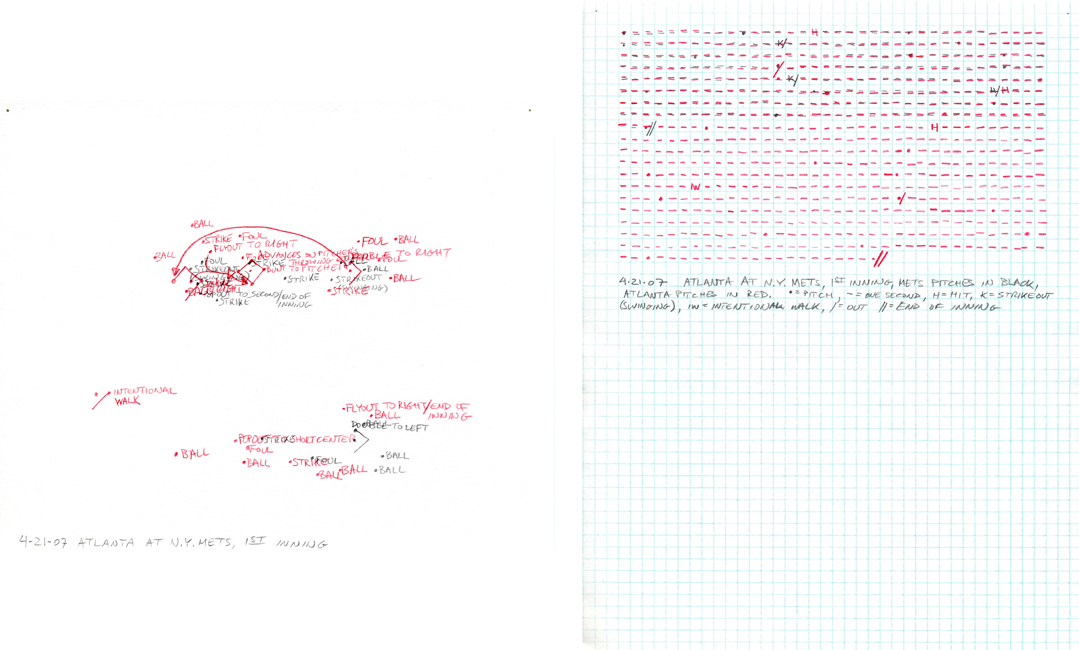 BALL
STRIKE FOUL
FLYOUT TO RIGHT
FOUL BALL
BALL
ADVANCES ON PITCHER'S
TO RIGHT
FOUL
STRIKE THROWING
BALL
FOUL
BUNT TO PITCHER
BALL
STRIKE
STRIKEOUT
BALL
(SWINGING)
STRIKE
TO SECOND/END OF
INNING
STRIKE
INTENTIONAL
WALK
FLYOUT TO RIGHT/END OF
INNING
BALL
DOUBLE TO LEFT
SHORT CENTER
FOUL
BALL
BALL
BALL
STRIKE
FOUL
BALL
BALL
BALL
4-21-07 ATLANTA AT N.Y. METS, 1ST INNING
H
K/
K/
H
H
IW
4.21.07 ATLANTA AT N.Y. METS, 1ST INNING, METS PITCHES IN BLACK,
ATLANTA PITCHES IN RED. •=PITCH, –=ONE SECOND, H=HIT, K=STRIKEOUT
(SWINGING), IW=INTENTIONAL WALK, /=OUT //=END OF INNING